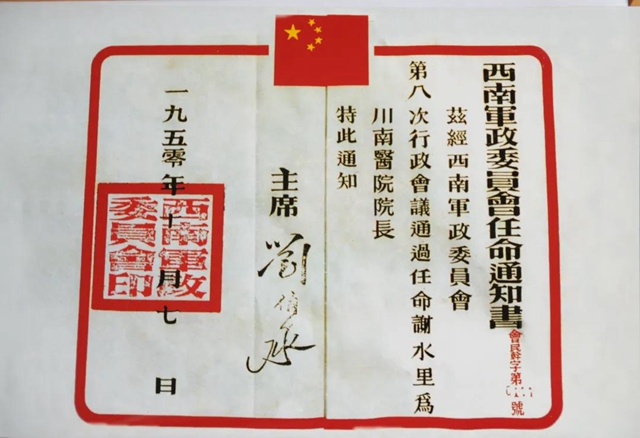 西南軍政委員會任命通知書
會民幹字第 號
茲經西南軍政委員會
第八次行政會議通過任命謝水里爲
川南醫院院長
特此通知
主席 劉伯承
一九五零年十一月七日
西南軍政
委員會印